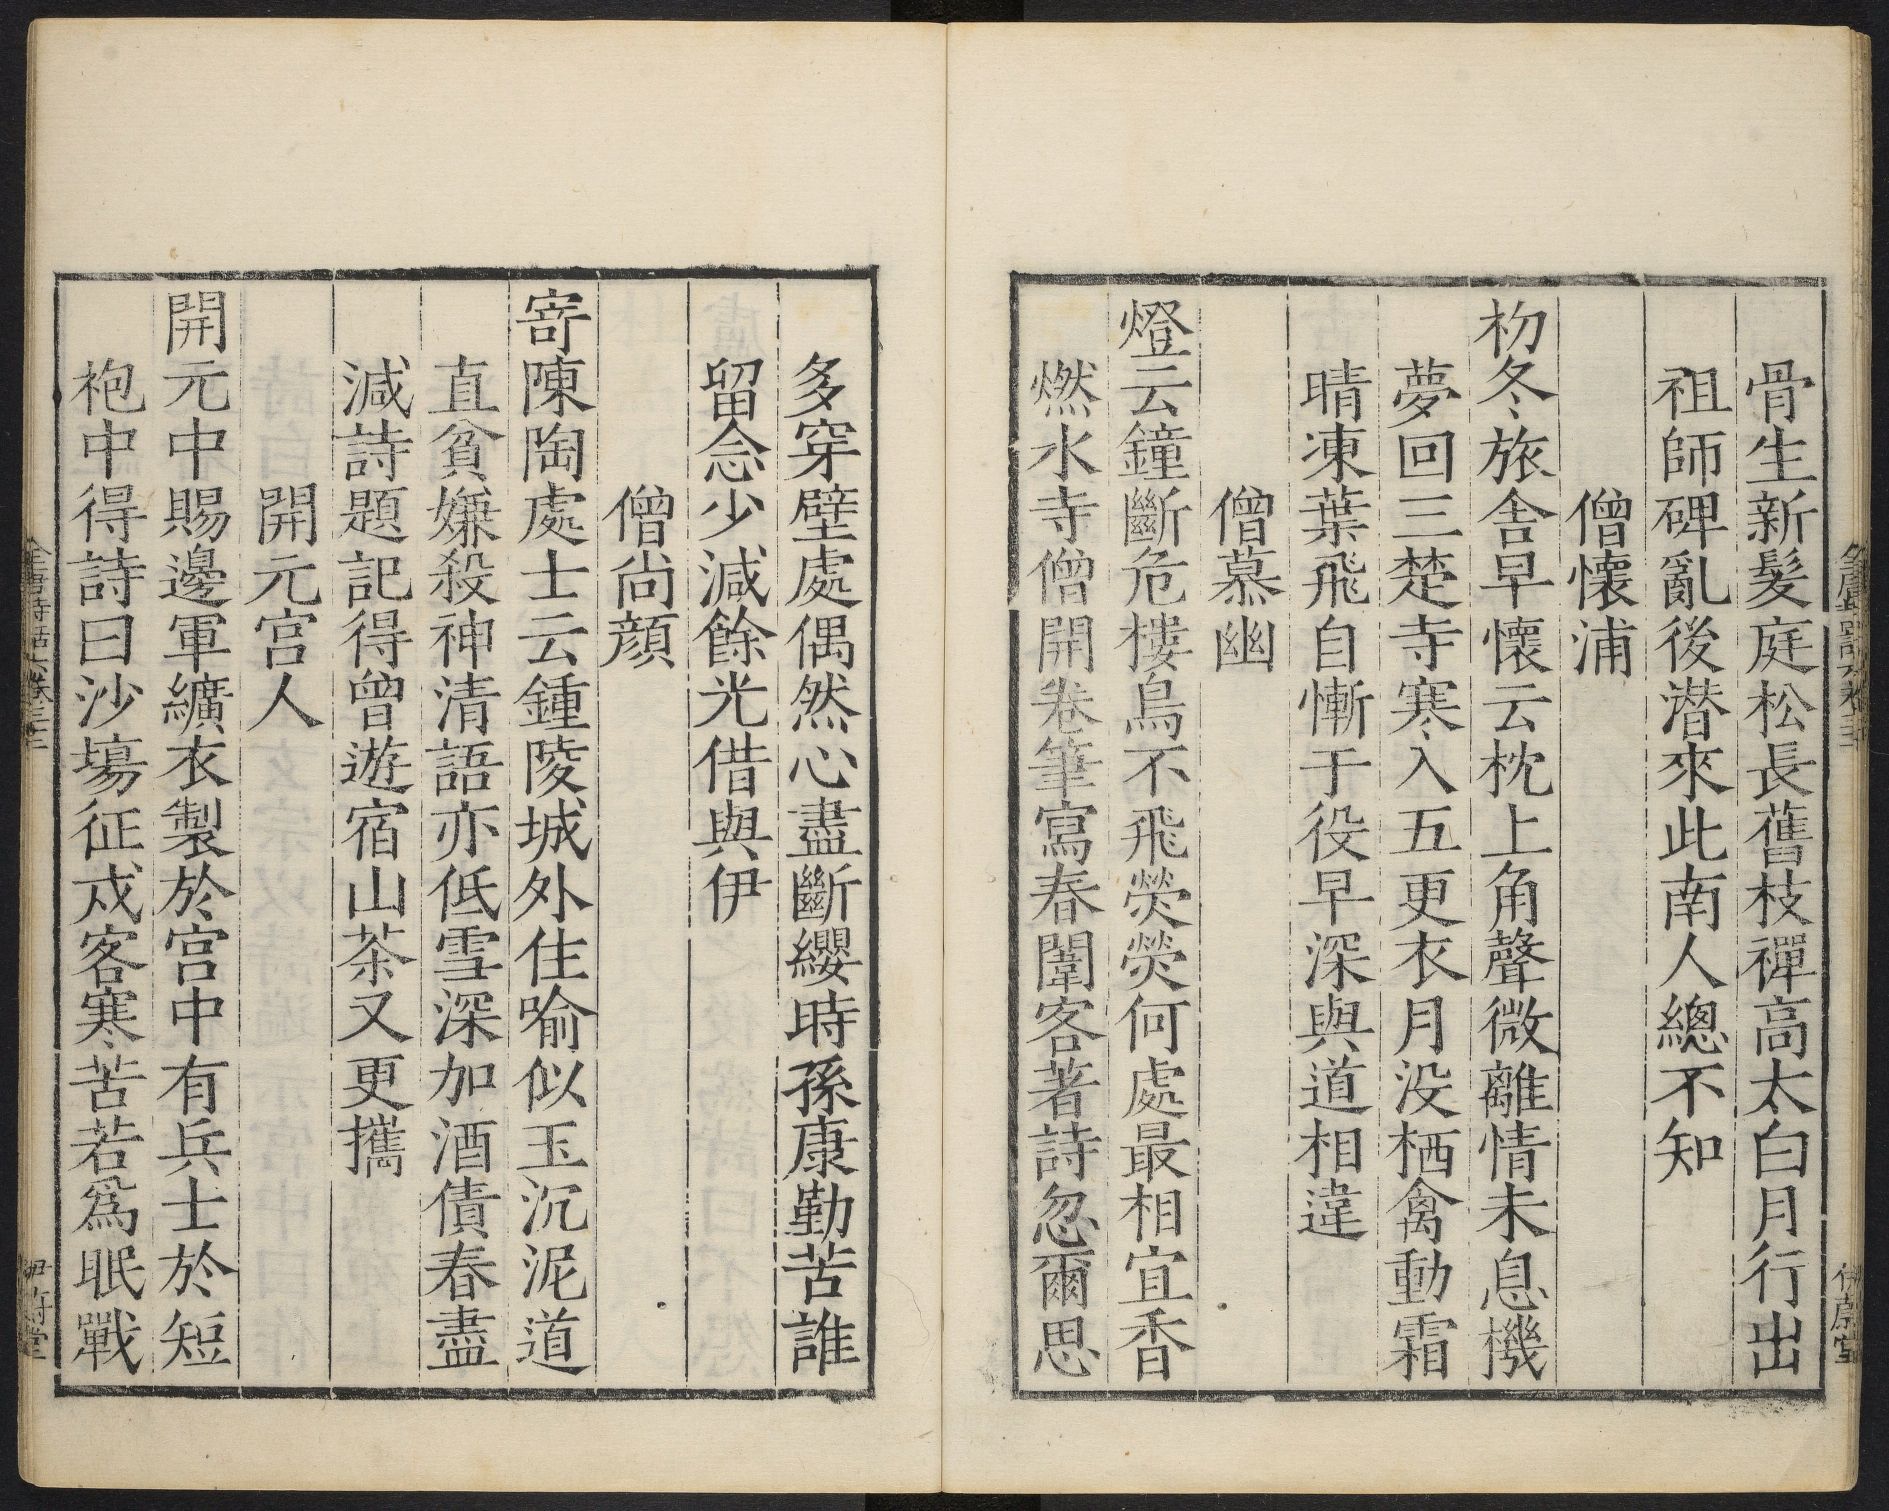 骨生新髮庭松長舊枝禪高太白月行出
祖師碑亂後潜來此南人總不知
僧懷浦
初冬旅舎早懷云枕上角聲微離情未息機
夢回三楚寺寒入五更衣月没栖禽動霜
晴凍葉飛自慚于役早深與道相違
僧慕幽
燈云鐘斷危樓鳥不飛熒熒何處最相宜香
燃水寺僧開卷筆寫春闈客著詩忽爾思
多穿壁處偶然心盡斷纓時孫康勤苦誰
留念少減餘光借與伊
僧尚顔
寄陳陶處士云鍾陵城外住喻似玉沉泥道
直貧嫌殺神清語亦低雪深加酒債春盡
減詩題記得曾遊宿山茶又更攜
開元宮人
開元中賜邊軍纊衣製於宮中有兵士於短
袍中得詩曰沙塲征戍客寒苦若爲眠戰